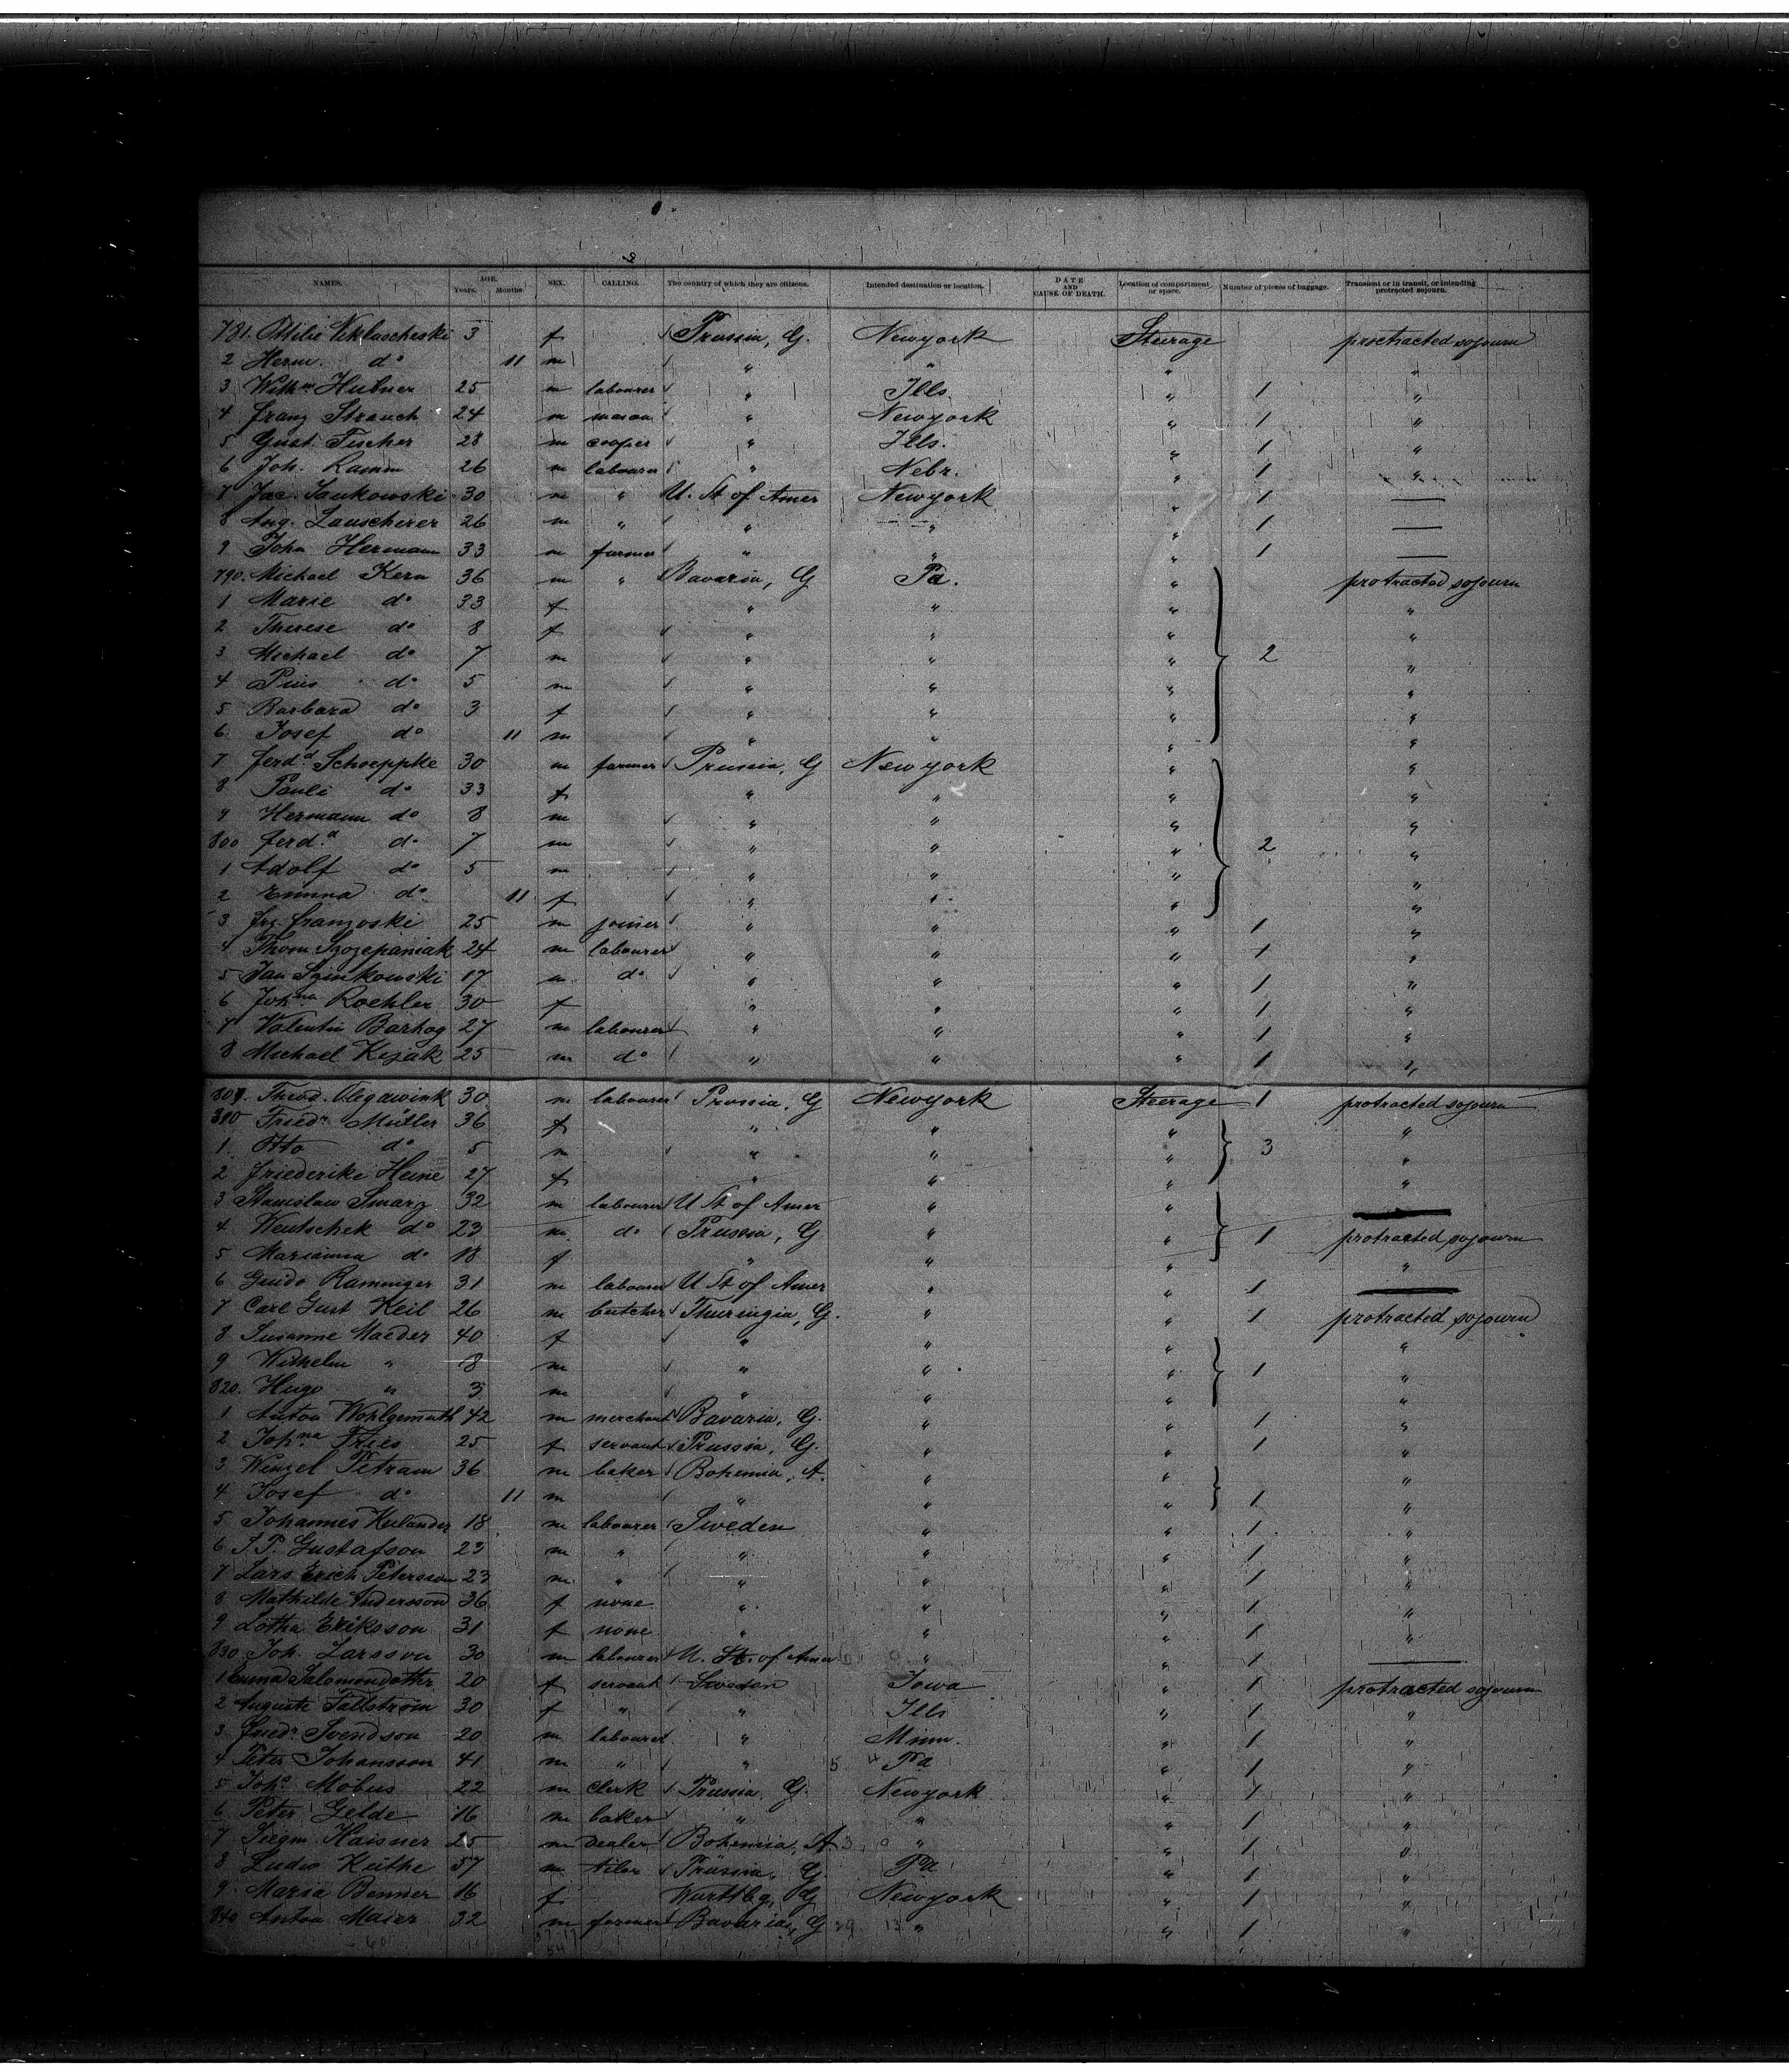 NAMES. AGE. Years. Months. SEX. CALLING. The country of which they are citizens. Intended destination or location. DATE AND CAUSE OF DEATH. Location of compartment or space. Number of pieces of baggage. Transient or in transit, or intending protracted sojourn.
781. Ottilie 3 f Prussia, G. Newyork Steerage protracted sojourn
2 Herm. do 11 m " " " "
3 Wilhm Hubner 25 m labourer " Ills. " 1 "
4 Franz Strauch 24 m mason " Newyork " 1 "
5 Gust. Fischer 28 m cooper " Ills. " 1 "
6 Joh. Ramm 26 m labourer " Nebr. " 1 "
7 Jac. Jankowski 30 m " U. St of Amer Newyork " 1 —
8 Aug. Lauscherer 26 m " " " " 1 —
9 John Hermann 33 m farmer " " " 1 —
790. Michael Kern 36 m " Bavaria, G Pa. " protracted sojourn
1 Marie do 33 f " " " "
2 Therese do 8 f " " " "
3 Michael do 7 m " " " 2 "
4 Pius do 5 m " " " "
5 Barbara do 3 f " " " "
6 Josef do 11 m " " " "
7 Ferdd Schoeppke 30 m farmer Prussia, G Newyork " "
8 Pauli do 33 f " " " "
9 Hermann do 8 m " " " "
800 Ferdd do 7 m " " " 2 "
1 Adolf do 5 m " " " "
2 Emma do 11 f " " " "
3 Frz. Franzoski 25 m joiner " " " 1 "
4 Thom. Szczepaniak 24 m labourer " " " 1 "
5 Jan Szinkowski 17 m do " " " 1 "
6 Johna Roehler 30 f " " " 1 "
7 Valentin Barhog 27 m labourer " " " 1 "
8 Michael Kijak 25 m do " " " 1 "
809. Theod. 30 m labourer Prussia, G Newyork Steerage 1 protracted sojourn
810 Friedr. Müller 36 f " " " "
1 Otto do 5 m " " " 3 "
2 Friederike Heine 27 f " " " "
3 Stanislaw Smarz 32 m labourer U St of Amer " " —
4 Wentschek do 23 m do Prussia, G " " 1 protracted sojourn
5 Marianna do 18 f " " " "
6 Guido Ramminger 31 m labourer U St of Amer " " 1 —
7 Carl Gust Keil 26 m butcher Thuringia, G. " " 1 protracted sojourn
8 Susanne Maeder 40 f " " " "
9 Wilhelm " 8 m " " " 1 "
820. Hugo " 3 m " " " "
1 Anton Wohlgemuth 42 m merchant Bavaria, G. " " 1 "
2 Johna Fries 25 f servant Prussia, G. " " 1 "
3 Wenzel Petram 36 m baker Bohemia, A. " " "
4 Josef do 11 m " " " 1 "
5 Johannes Kulander 18 m labourer Sweden " " 1 "
6 J. P. Gustafson 23 m " " " " 1 "
7 Lars Erich Petersson 23 m " " " " 1 "
8 Mathilde Andersson 36 f none " " " 1 "
9 Lotha Eriksson 31 f none " " " 1 "
830 Joh. Larsson 30 m labourer U. St. of Amer " " 1 —
1 Emma Salomondotter 20 f servant Sweden Iowa " 1 protracted sojourn
2 Auguste Fallstrom 30 f " " Ills " 1 "
3 Friedr. Svendson 20 m labourer " Minn. " 1 "
4 Peter Johansson 41 m " " Pa " 1 "
5 Johs Mobus 22 m clerk Prussia, G. Newyork " 1 "
6 Peter Gelde 16 m baker " " " 1 "
7 Siegm. Kaisner 25 m dealer Bohemia, A " " 1 "
8 Ludw Kuthe 57 m tiler Prussia, G. Pa " 1 "
9. Maria Benner 16 f Wurttbg, G Newyork " 1 "
840 Anton Maier 32 m farmer Bavaria, G " " 1 "